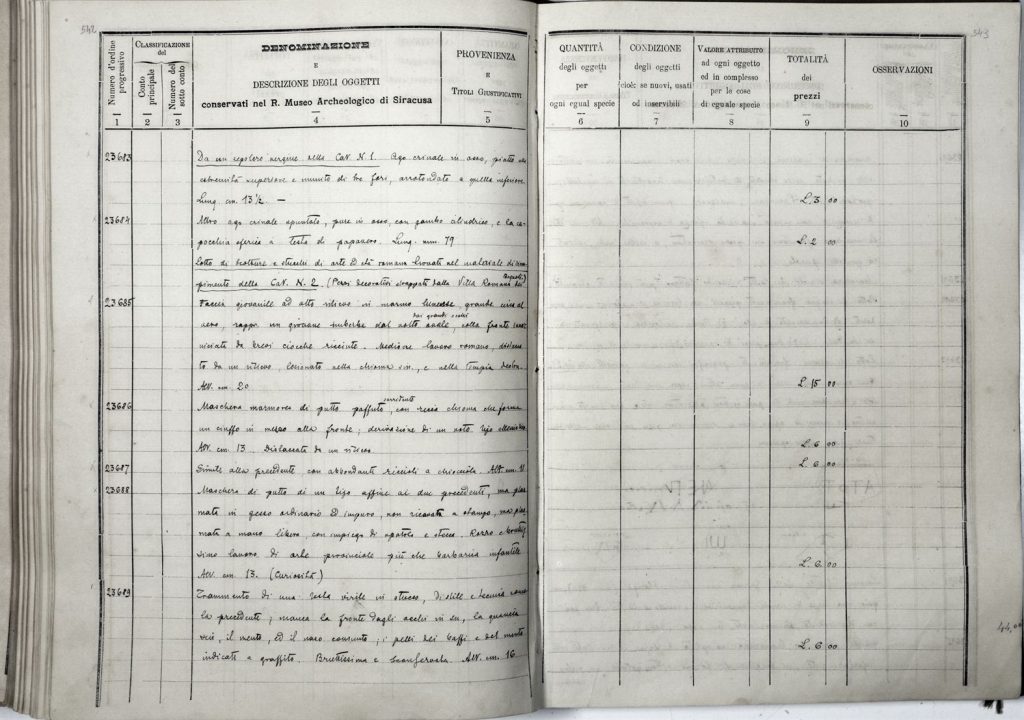 542
Numero d'ordine progressivo
CLASSIFICAZIONE del
Conto principale
Numero del sotto conto
DENOMINAZIONE
E
DESCRIZIONE DEGLI OGGETTI
conservati nel R. Museo Archeologico di Siracusa
PROVENIENZA
E
TITOLI GIUSTIFICATIVI
1 2 3 4 5
23683 Da un sepolcro vergine nella Cat. N. 1. Ago crinale in osso, piatto
estremità superiore e munito di tre fori, arrotondato a quella inferiore.
Lung. cm. 13½. —
23684 Altro ago crinale spuntato, pure in osso, con gambo cilindrico, e la ca-
pocchia sferica a testa di papavero. Lung. mm. 79
Lotto di sculture e stucchi di arte ed età romana trovati nel materiale di riem-
pimento della Cat. N. 2. (Pezzi decorativi strappati dalla Villa Romana
23685 Faccia giovanile ad alto rilievo in marmo lunense, grande circa al
vero, rappr. un giovane imberbe dal volto ovale, dai grandi occhi colla fronte
da brevi ciocche ricciute. Mediocre lavoro romano,
to da un rilievo, lesionato nella chioma sin., e nella tempia destra.
Alt. cm. 20
23686 Maschera marmorea di putto paffuto, sorridente con riccia chioma che forma
un ciuffo in mezzo alla fronte; derivazione di un noto tipo
Alt. cm. 13. Distaccata da un rilievo
23687 Simile alla precedente con abbondanti riccioli a chiocciola. Alt. cm. 11
23688 Maschera di putto di un tipo affine ai due precedenti, ma plas-
mata in gesso ordinario ed impuro, non ricavata a stampo, ma plas-
mata a mano libera, con impiego di spatola e stecca. Rozzo
simo lavoro di arte provinciale più che barbarie infantile
Alt. cm. 13. (Curiosità)
23689 Frammento di una testa virile in stucco, di stile e tecnica come
la precedente; manca la fronte dagli occhi in su, la guancia
il mento, ed il naso consunto; i pelli dei baffi e del mento
indicati a graffito. Bruttissima e sconservata. Alt. cm. 16
543
QUANTITÀ
degli oggetti
per
ogni egual specie
CONDIZIONE
degli oggetti
cioè: se nuovi, usati
od inservibili
VALORE ATTRIBUITO
ad ogni oggetto
od in complesso
per le cose
di eguale specie
TOTALITÀ
dei
prezzi
OSSERVAZIONI
6 7 8 9 10
L. 3 00
L. 2 00
L. 15 00
L. 6 00
L. 6 00
L. 6 00
L. 6 00
44,00